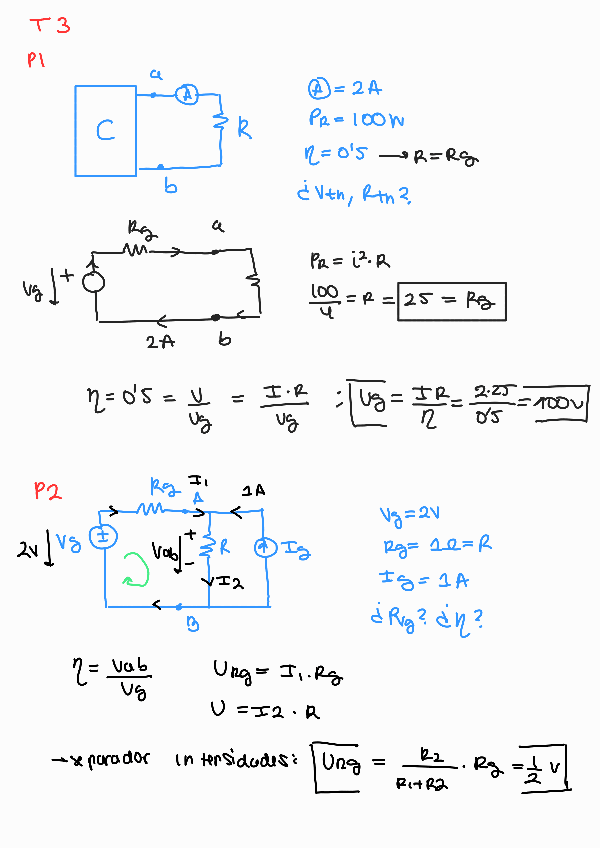 T3
P1
a
A
C
R
b
Ⓐ = 2A
P_R = 100W
η = 0'5 → R = Rg
¿Vth, Rth?
Rg
a
Vg
+
2A
b
P_R = i²·R
100/4 = R = 25 = Rg
η = 0'5 = V/Vg = I·R/Vg ; Vg = IR/η = 2·25/0'5 = 100V
P2
Rg
I1
A
1A
2V
Vg
±
Vab
+
-
R
Ig
I2
B
Vg = 2V
Rg = 1Ω = R
Ig = 1A
¿Rvg? ¿η?
η = Vab/Vg
URg = I1·Rg
U = I2·R
→ separador intensidades: URg = R2/(R1+R2) · Rg = 1/2 V